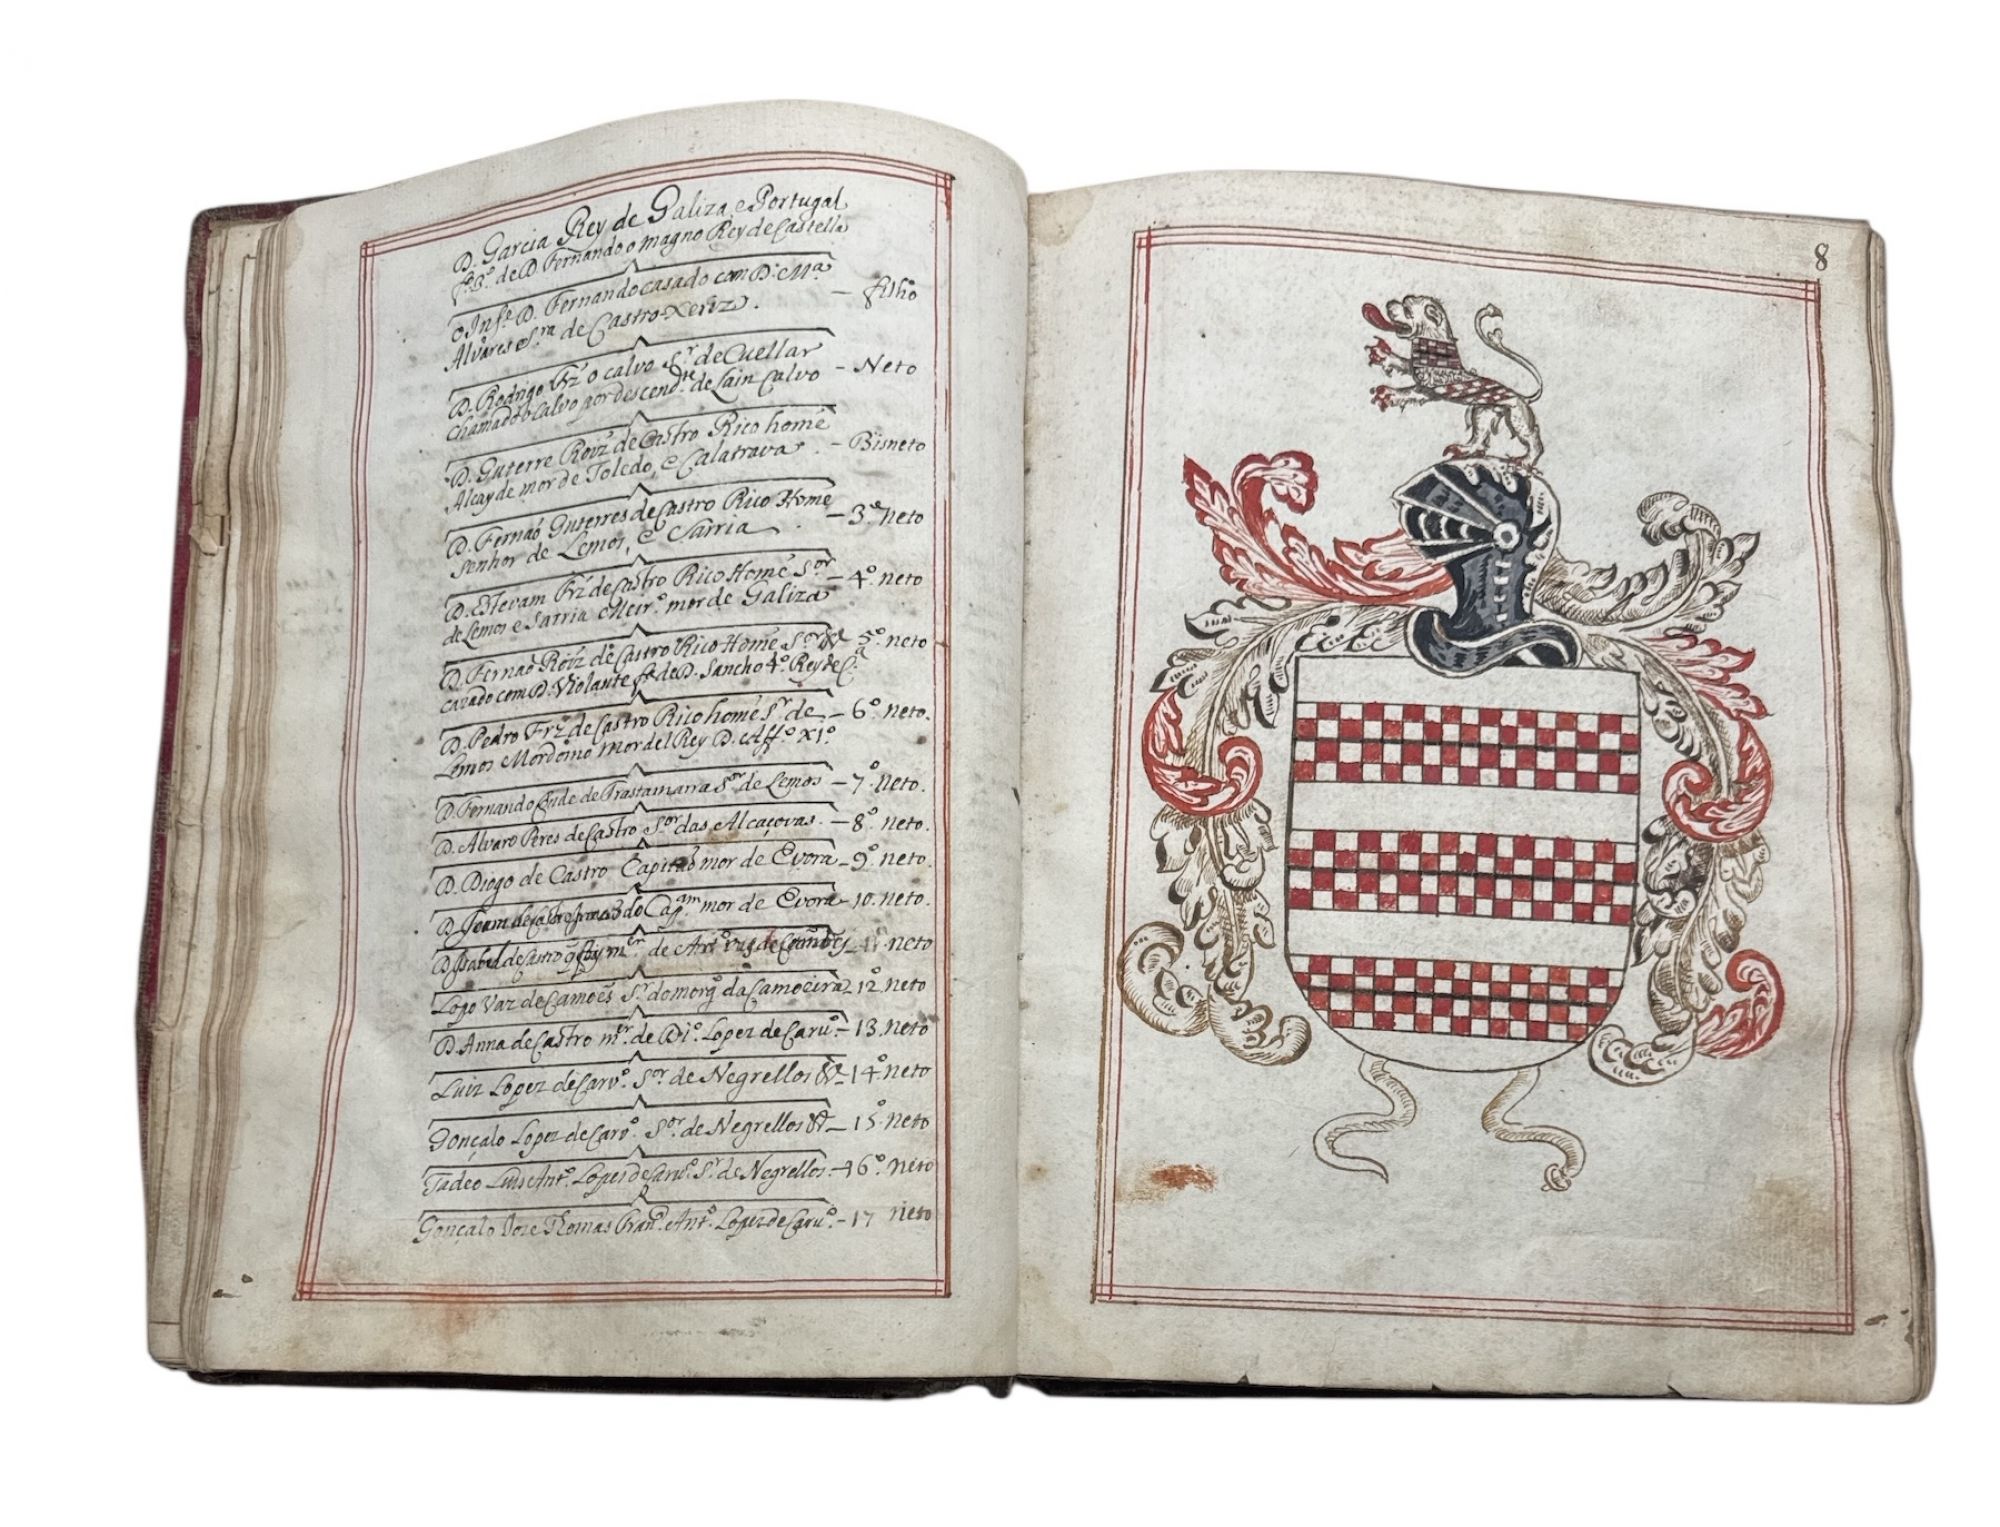 D. Garcia Rey de Galiza, e Portugal
fº 3º. de D. Fernando o magno Rey de Castella
O Infe. D. Fernando casado com D. Mª
Alvares Sra de Castro Xeriz. — filho
D. Rodrigo Frz o calvo Sr. de Cuellar
chamado o Calvo por descendte. de Lain Calvo — Neto
D. Guterre Roiz de Castro Rico homé
Alcayde mor de Toledo, e Calatrava. — Bisneto
D. Fernaõ Guterres de Castro Rico Homé
Senhor de Lemos, e Sarria — 3º. neto
D. Estevam Frz de Castro Rico Homé Sor
de Lemos e Sarria e Meirº. mor de Galiza — 4º. neto
D. Fernaõ Roiz de Castro Rico Home Sor — 5º. neto
cazado com D. Violante fª. de D. Sancho 4º. Rey de Cª
D. Pedro Frz de Castro Rico homé Sr. de — 6º. neto.
Lemos Mordomo mor del Rey D. Affº. XIº
D. Fernando Conde de Trastamarra Sor de Lemos — 7º. neto.
D. Alvaro Peres de Castro Sor das Alcaçovas. — 8º. neto.
D. Diogo de Castro Capitaõ mor de Evora — 9º. neto.
D. de Capam. mor de Evora — 10. neto.
D. Isabel de Castro mer. de Antº. — 11º neto
Lopo Vaz de Camoẽs Sr. do morgº. da Camoeira — 12º. neto
D. Anna de Castro mer. de Diº. Lopez de Carvº. — 13. neto
Luiz Lopez de Carvº. Sor. de Negrellos & — 14º. neto
Gonçalo Lopez de Carvº. Sor. de Negrellos & — 15º. neto
Tadeo Luis Antº. Lopes de Carvº. Sr. de Negrellos — 16º. neto
Gonçalo Joze Thomas Franº. Antº. Lopez de Carvº. — 17 neto
8